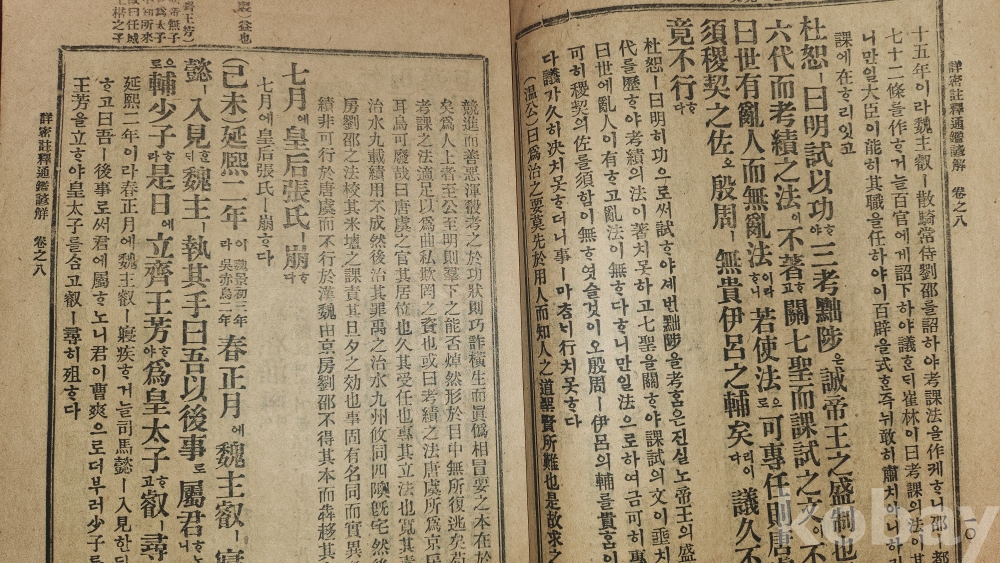 十五年이라魏主叡ㅣ散騎常侍劉邵를詔하야考課法을作케ᄒᆞ니邵ㅣ都
七十二條를作ᄒᆞ거늘百官에게詔下하야議ᄒᆞᆫᄃᆡ崔林이曰考課의法이其
니만일大臣이能히其職을任하야이百辟을式ᄒᆞ온즉뉘敢히肅치아니하리
課에在ᄒᆞ리잇고
杜恕ㅣ曰明試以功ᄒᆞ야三考黜陟은誠帝王之盛制也
六代而考績之法이不著고關七聖而課試之文이不
曰世有亂人而無亂法이라ᄒᆞ니若使法으로可專任則唐虞
須稷契之佐오殷周ㅣ無貴伊呂之輔矣다리이議久不
竟不行ᄒᆞ다
杜恕ㅣ曰明히功으로써試ᄒᆞ야세번黜陟을考ᄒᆞᆷ은진실노帝王의盛
代를歷ᄒᆞ야考績의法이著치못하고七聖을關ᄒᆞ야課試의文이垂치
曰世에亂人이有ᄒᆞ고亂法이無ᄒᆞ다ᄒᆞ니만일法으로하여금可히專
可히稷契의佐를須함이無ᄒᆞ엿슬것이오殷周ㅣ伊呂의輔를貴ᄒᆞᆷ이
다議가久ᄒᆞ야決치못ᄒᆞ더니事ㅣ마ᄎᆞᆷᄂᆡ行치못ᄒᆞ다
(溫公)曰爲治之要莫先於用人而知人之道聖賢所難也是故求之
詳密註釋通鑑諺解 卷之八
一〇
競進而善惡渾殽考之於功狀則巧詐橫生而眞僞相冒要之本在於
矣爲人上者至公至明則羣下之能否焯然形於目中無所復逃矣苟
考課之法適足以爲曲私欺罔之資也或曰考績之法唐虞所爲京房
耳烏可廢哉曰唐虞之官其居位也久其受任也專其立法也寬其責
治水九載績用不成然後治其罪禹之治水九州攸同四隩旣宅然後
房劉邵之法校其米鹽之課責其旦夕之效也事固有名同而實異
績非可行於唐虞而不行於漢魏由京房劉邵不得其本而犇趨其
七月에皇后張氏ㅣ崩ᄒᆞ다
七月에皇后張氏ㅣ崩ᄒᆞ다
(己未)延熙二年이라 魏景初三年 吳赤烏二年 春正月에魏主叡ㅣ寢
懿ㅣ入見ᄒᆞᆫᄃᆡ魏主ㅣ執其手曰吾以後事로屬君ᄒᆞ노니
으로輔少子ᄒᆞ라是日에立齊王芳ᄒᆞ야爲皇太子ᄒᆞ고叡ㅣ尋
延熙二年이라春正月에魏主叡ㅣ寢疾ᄒᆞ거늘司馬懿ㅣ入見한ᄃᆡ
ᄒᆞ고曰吾ㅣ後事로써君에屬ᄒᆞ노니君이曹爽으로더부러少子를
王芳을立ᄒᆞ야皇太子를슴고叡ㅣ尋히殂ᄒᆞ다
詳密註釋通鑑諺解 卷之八
kobay